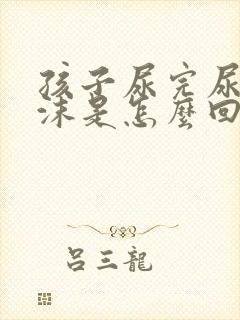 孩子尿完尿
沫是怎麼回
吕三龍